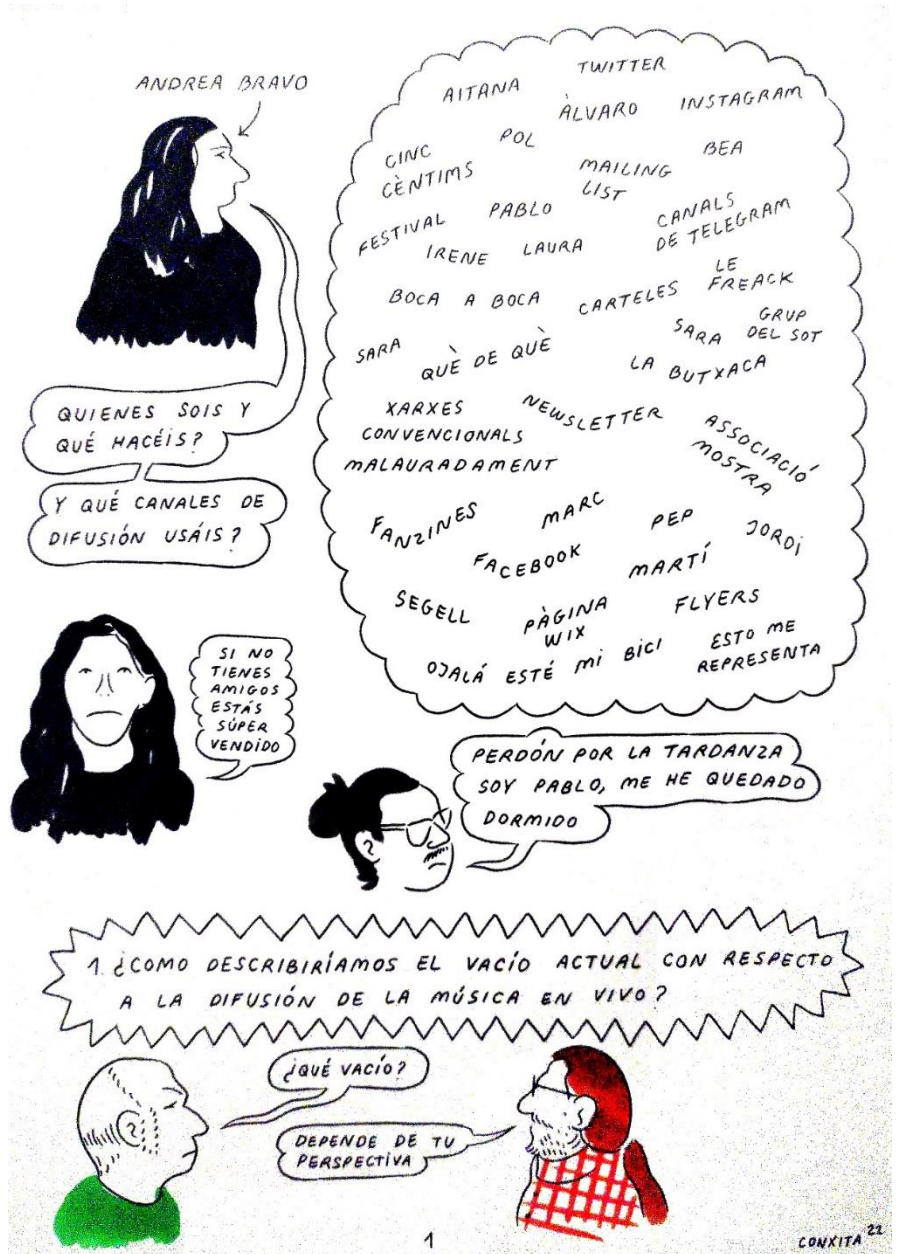 ANDREA BRAVO
QUIENES SOIS Y
QUÉ HACÉIS?
Y QUÉ CANALES DE
DIFUSIÓN USÁIS?
AITANA
TWITTER
ÀLVARO
INSTAGRAM
CINC
CÈNTIMS
POL
MAILING
LIST
BEA
FESTIVAL
PABLO
CANALS
DE TELEGRAM
IRENE
LAURA
BOCA A BOCA
CARTELES
LE
FREACK
SARA
QUÈ DE QUÈ
SARA
GRUP
DEL SOT
LA BUTXACA
XARXES
CONVENCIONALS
MALAURADAMENT
NEWSLETTER
ASSOCIACIÓ
MOSTRA
FANZINES
MARC
PEP
JORDI
FACEBOOK
MARTÍ
SEGELL
PÀGINA
WIX
FLYERS
OJALÁ ESTÉ MI BICI
ESTO ME
REPRESENTA
SI NO
TIENES
AMIGOS
ESTÁS
SÚPER
VENDIDO
PERDÓN POR LA TARDANZA
SOY PABLO, ME HE QUEDADO
DORMIDO
1. ¿COMO DESCRIBIRÍAMOS EL VACÍO ACTUAL CON RESPECTO
A LA DIFUSIÓN DE LA MÚSICA EN VIVO?
¿QUÉ VACÍO?
DEPENDE DE TU
PERSPECTIVA
1
CONXITA 22